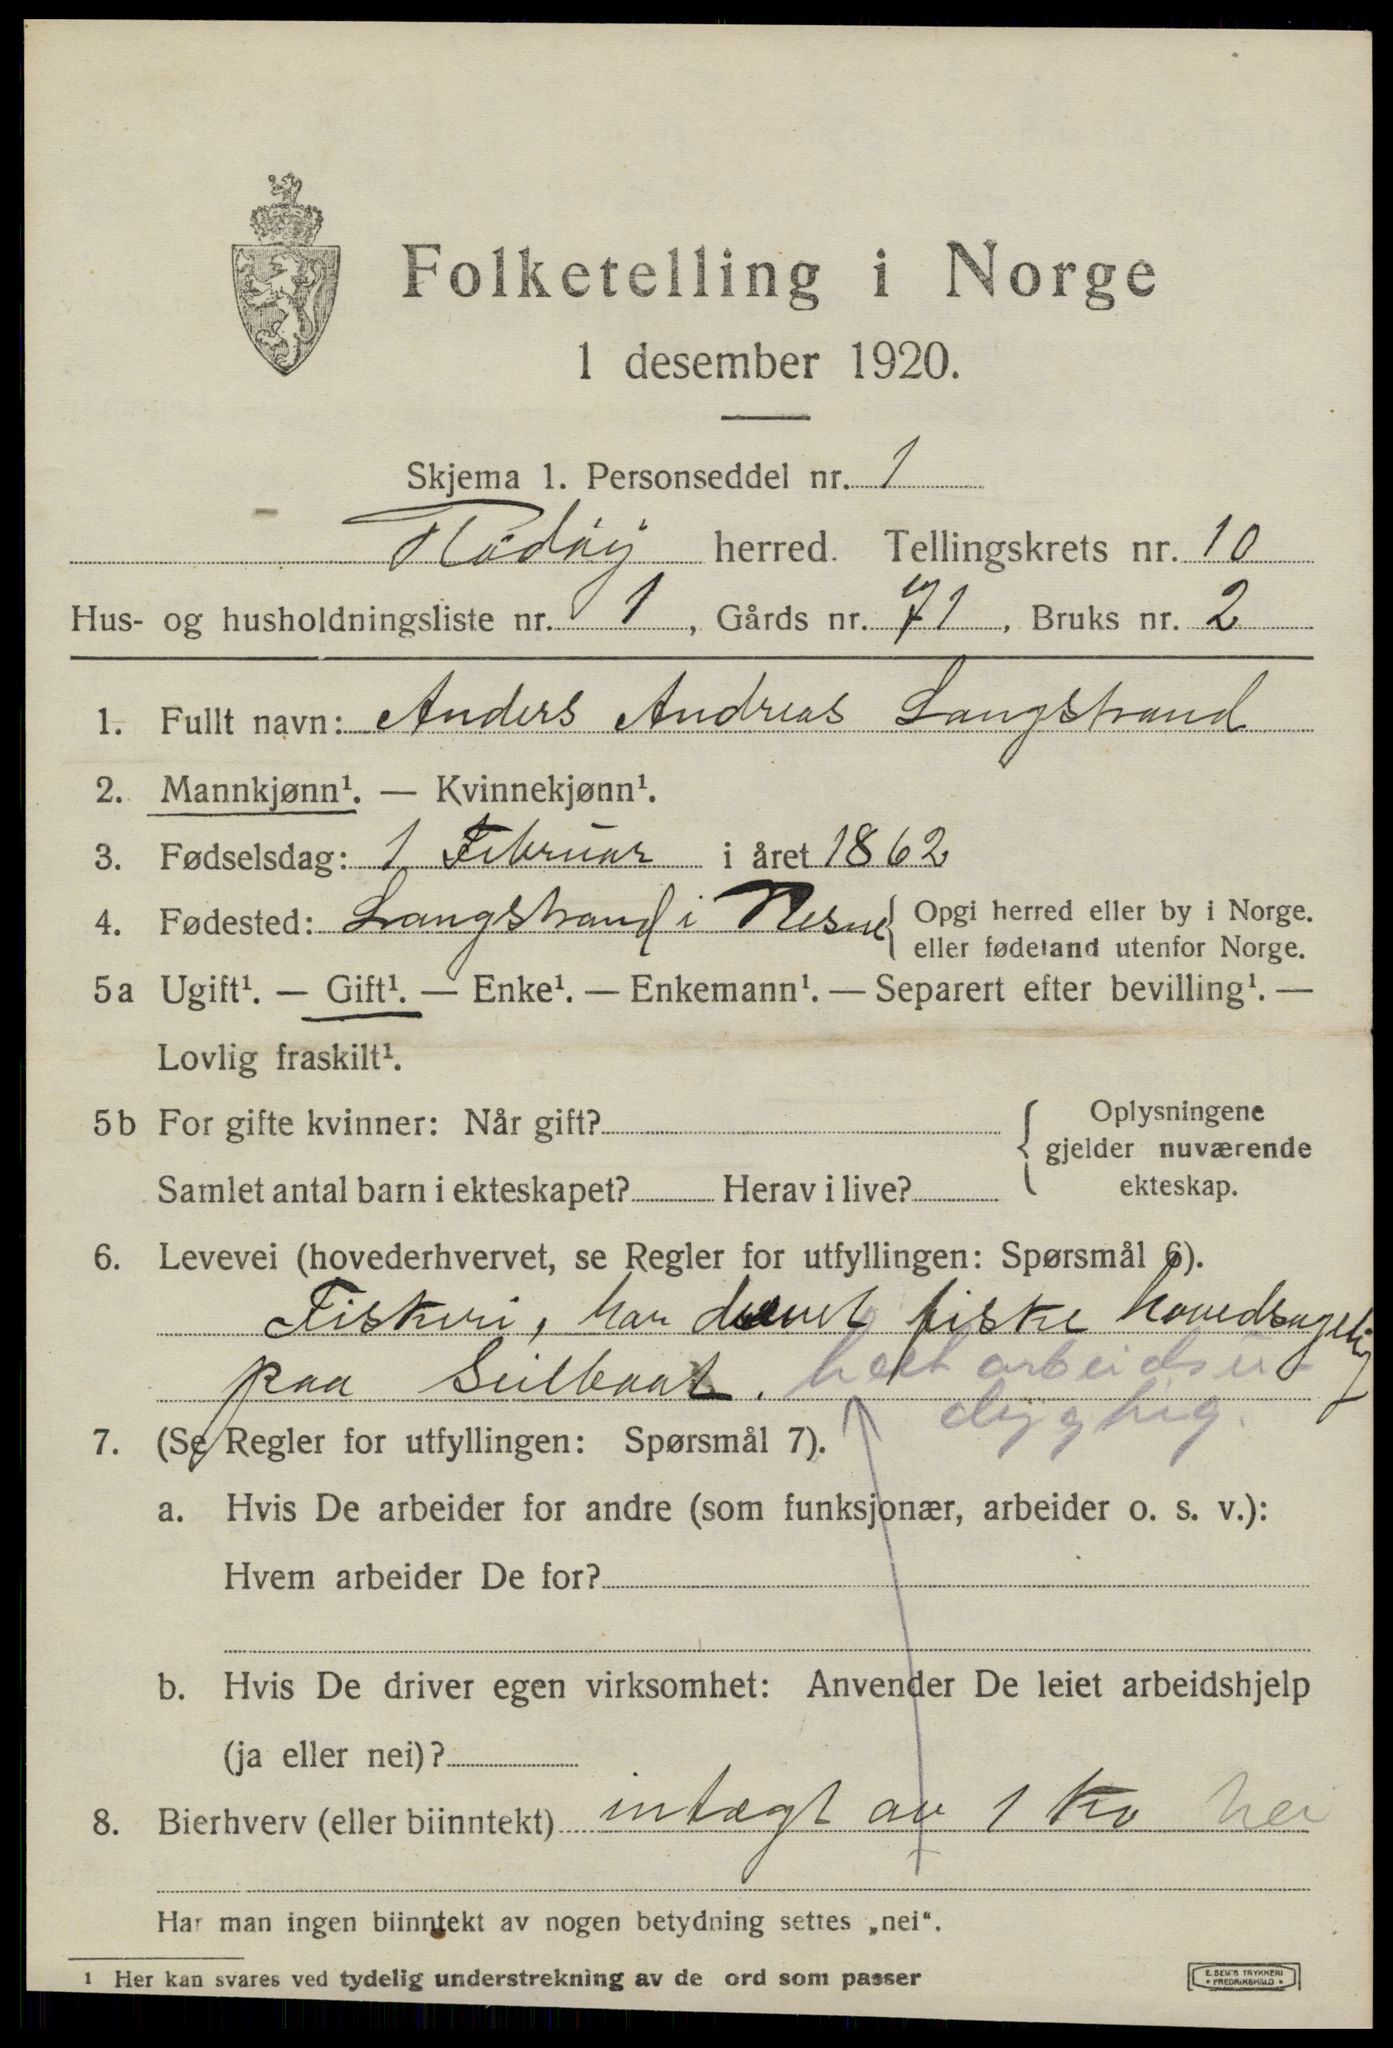 Folketelling i Norge
1 desember 1920.
Skjema 1. Personseddel nr. 1
Rödöy herred. Tellingskrets nr. 10
Hus- og husholdningsliste nr. 1, Gårds nr. 71, Bruks nr. 2
1. Fullt navn: Anders Andreas Langstrand
2. Mannkjønn¹. — Kvinnekjønn¹.
3. Fødselsdag: 1 Februar i året 1862
4. Fødested: Langstrand i Nesne { Opgi herred eller by i Norge.
eller fødeland utenfor Norge.
5a Ugift¹. — Gift¹. — Enke¹. — Enkemann¹. — Separert efter bevilling¹. —
Lovlig fraskilt¹.
5b For gifte kvinner: Når gift? { Oplysningene
gjelder nuværende
Samlet antal barn i ekteskapet? Herav i live? ekteskap.
6. Levevei (hovederhvervet, se Regler for utfyllingen: Spørsmål 6).
Fiskeri, har drevet fiske hovedsagelig
paa Seilbaat. helt arbeidsu-
dygtig.
7. (Se Regler for utfyllingen: Spørsmål 7).
a. Hvis De arbeider for andre (som funksjonær, arbeider o. s. v.):
Hvem arbeider De for?
b. Hvis De driver egen virksomhet: Anvender De leiet arbeidshjelp
(ja eller nei)?
8. Bierhverv (eller biinntekt) intægt av 1 Ko nei
Har man ingen biinntekt av nogen betydning settes „nei“.
¹ Her kan svares ved tydelig understrekning av de ord som passer
E. SEM'S TRYKKERI
FREDRIKSHALD